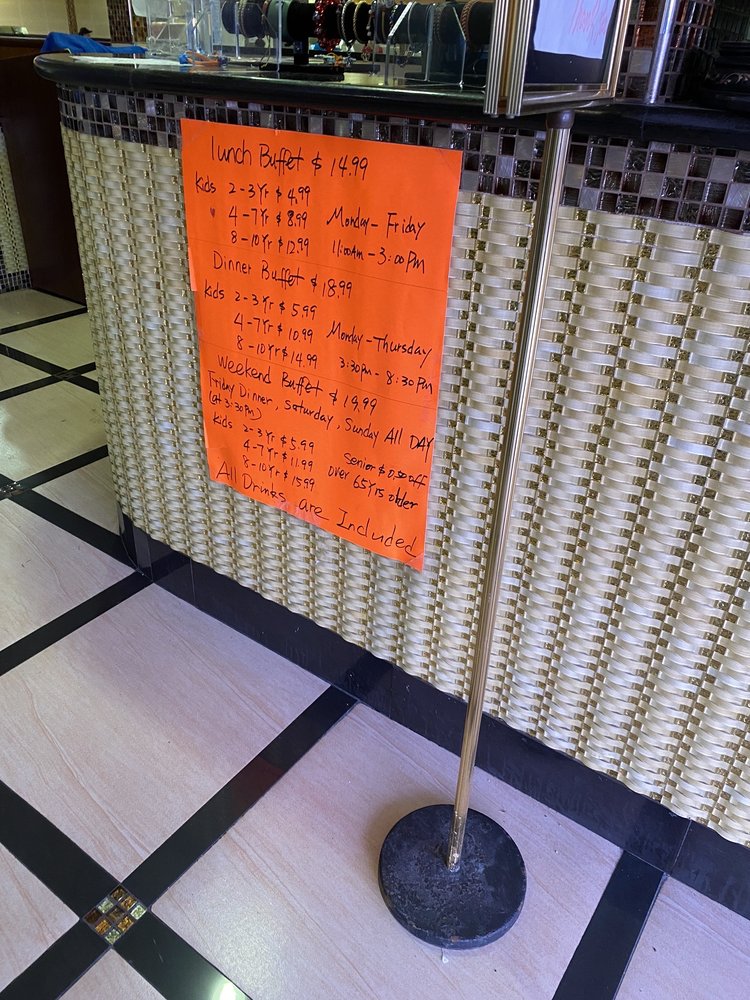 lunch Buffet $ 14.99
Kids 2-3 Yr $ 4.99
4-7Yr $ 8.99 Monday - Friday
8-10Yr $ 12.99 11:00AM - 3:00 PM
Dinner Buffet $ 18.99
Kids 2-3 Yr $ 5.99
4-7Yr $ 10.99 Monday - Thursday
8-10Yr $ 14.99 3:30pm - 8:30 PM
Weekend Buffet $ 19.99
Friday Dinner, Saturday, Sunday All DAY
(at 3:30pm)
Kids 2-3Yr $ 5.99
4-7Yr $ 11.99 Senior $ 0.50 off
8-10Yr $ 15.99 over 65 Yrs older
All Drinks are Included